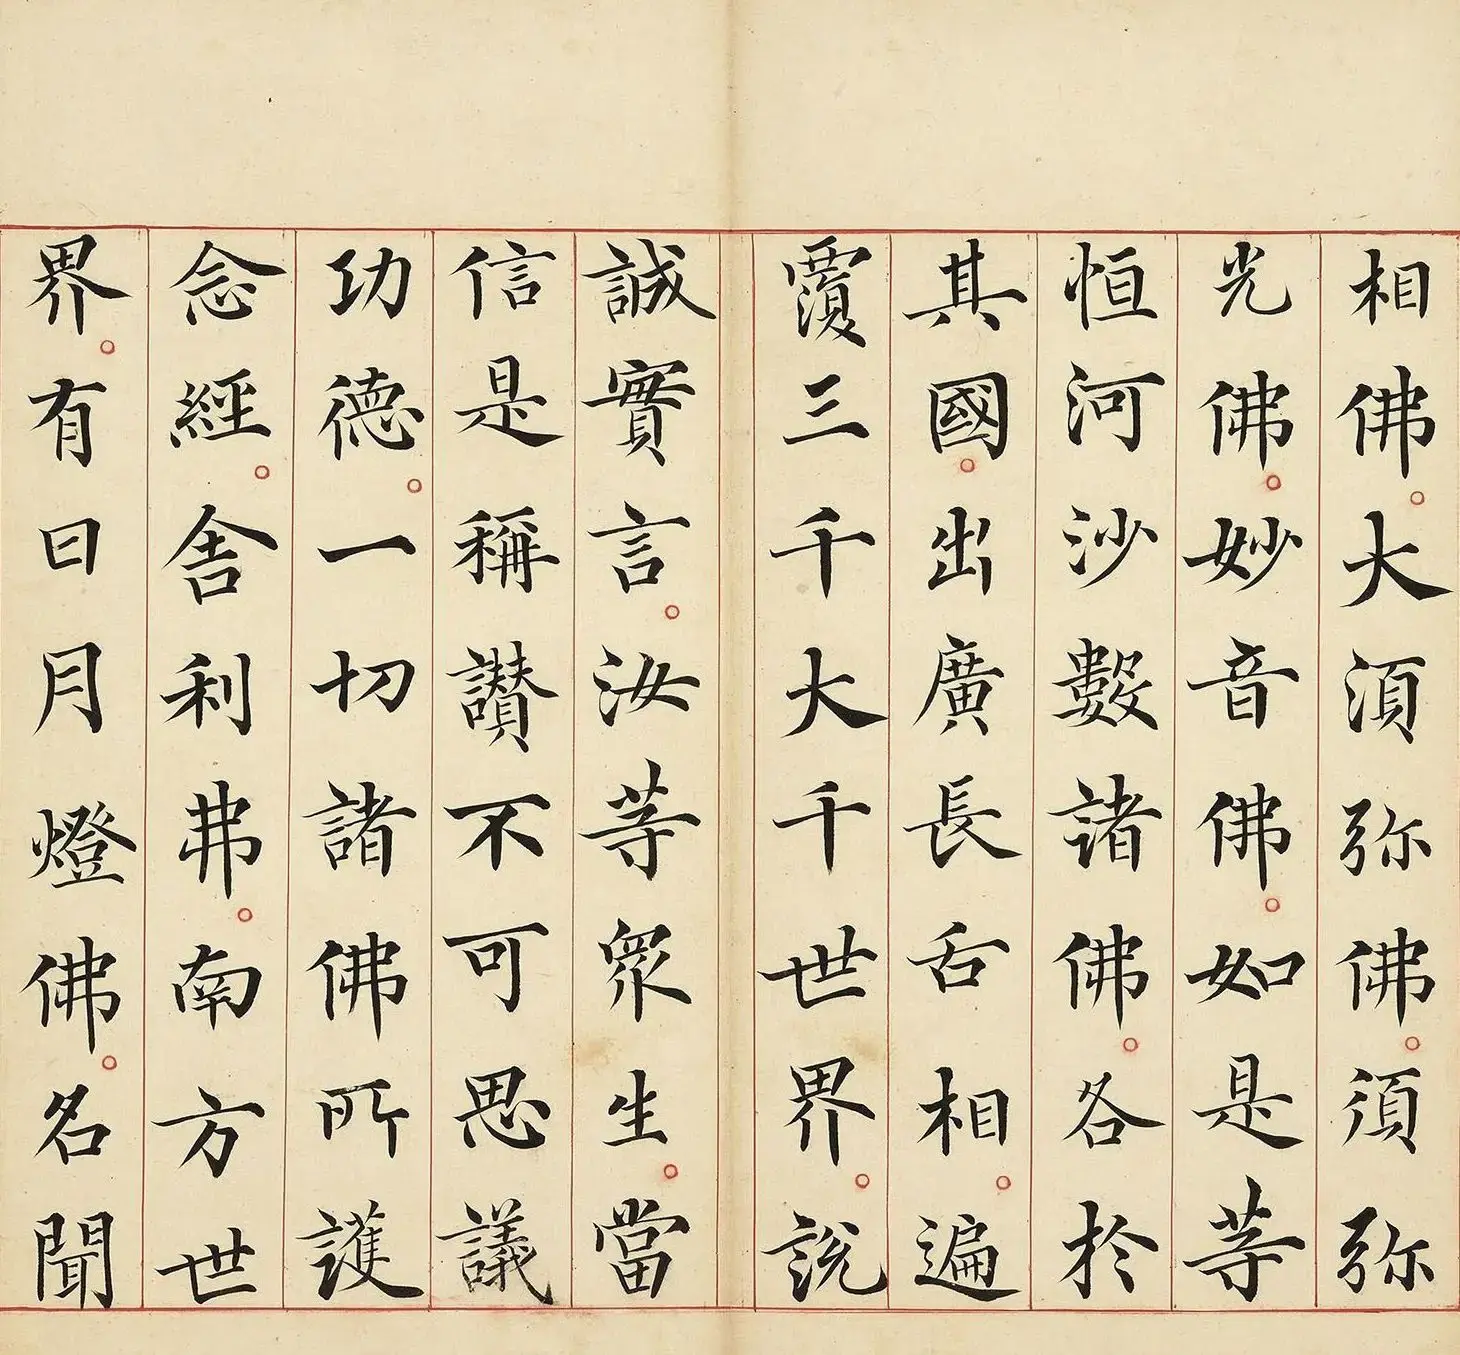 相佛。大須弥佛。須弥
光佛。妙音佛。如是等
恒河沙數諸佛。各於
其國。出廣長舌相。遍
覆三千大千世界。說
誠實言。汝等眾生。當
信是稱讃不可思議
功德。一切諸佛所護
念經。舍利弗。南方世
界。有日月燈佛。名聞